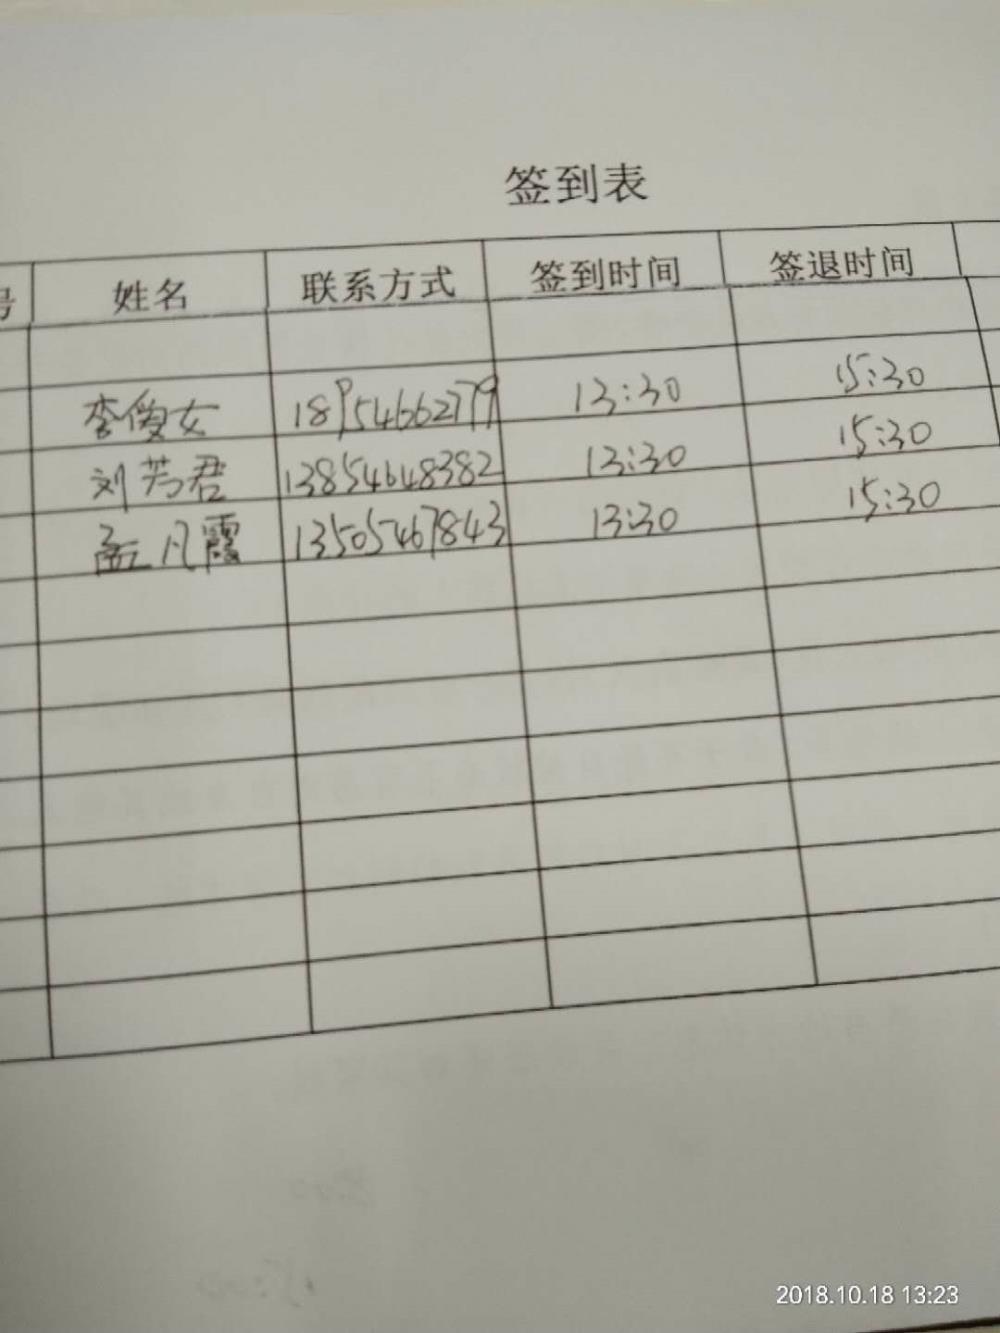 签到表
号 姓名 联系方式 签到时间 签退时间
李俊女 18954662779 13:30 15:30
刘芳君 13854648382 13:30 15:30
孟凡霞 13505467843 13:30 15:30
2018.10.18 13:23